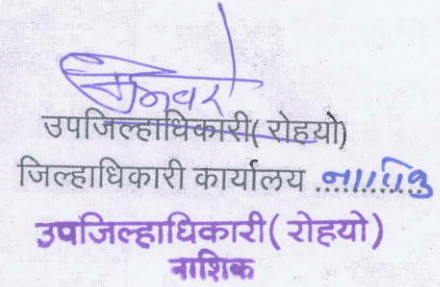 उपजिल्हाधिकारी( रोहयो)
जिल्हाधिकारी कार्यालय ..नाशिक
उपजिल्हाधिकारी( रोहयो)
नाशिक